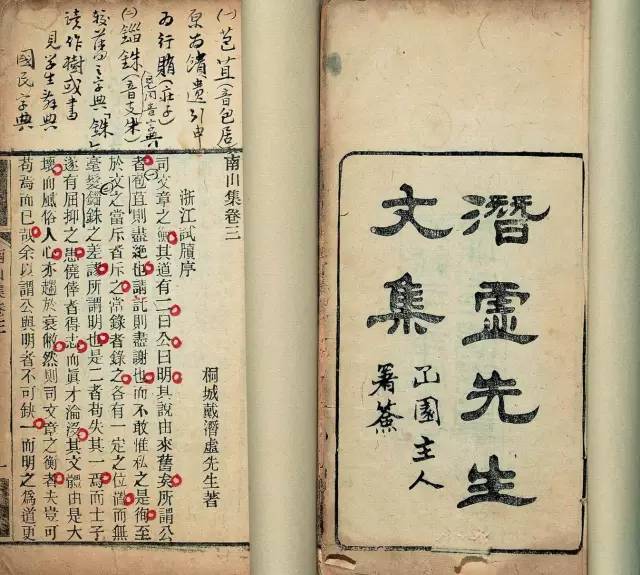 潛虛先生
文集
園主人
署簽
㈠苞苴(音包居)
原為饋遺引申
為行賄(莊子)
音字典
㈡錙銖(音支朱)
舊之字典「銖」
讀作樹或書
見學生辭典
國民字典
南山集卷三
桐城戴潛虛先生著
浙江試牘序
司文章之衡其道有二曰公曰明其說由來舊矣所謂公
者苞苴則盡絶也請託則盡謝也而不敢惟私之是徇至
於文之當斥者斥之當錄者錄之各有一定之位置而無
毫髮錙銖之差謬所謂明也是二者苟失其一焉而士子
遂有屈抑之患僥倖者得志而眞才淪沒其文體由是大
壞而風俗人心亦趨於衰敝然則司文章之衡者夫豈可
苟焉而已哉余以謂公與明者不可缺一而明之爲道更
南山集卷三